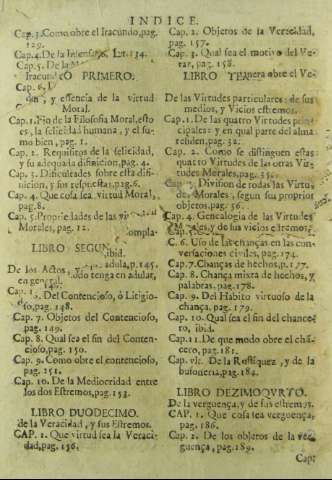 INDICE.
Cap. 3. Como obre el Iracundo, pag.
129.
Cap. 4. De la Lit. 134.
Cap. 5. De la
Iracund O PRIMERO.
Cap. 6.
y essencia de la virtud
Moral.
Cap. 1. Fin de la Filosofia Moral, esto
es, la felicidad humana, y el su-
mo bien, pag. 1.
Cap. 2. Requisitos de la felicidad,
y su adequada difinicion, pag. 4.
Cap. 3. Dificultades sobre esta difi-
nicion, y sus respuestas, pag. 6.
Cap. 4. Que cosa sea virtud Moral,
pag. 8.
Cap. 5. Propriedades de las
Morales, pag. 12.
ompla-
LIBRO SEGUN
ibid.
adula, p. 145.
De los Actos,
do tenga en adular,
en general.
Cap. Del Contencioso, ò Litigio-
so, pag. 148.
Cap. 7. Objetos del Contencioso,
pag. 149.
Cap. 8. Qual sea el fin del Conten-
cioso, pag. 150.
Cap. 9. Como obre el contencioso,
pag. 151.
Cap. 10. De la Mediocridad entre
los dos Estremos, pag. 153.
LIBRO DUODECIMO.
de la Veracidad, y sus Estremos.
CAP. 1. Que virtud sea la Veraci-
dad, pag. 156.
Cap. 2. Objetos de la Verzidad,
pag. 157.
Cap. 3. Qual sea el motivo del Ve-
raz, pag. 158.
LIBRO obre el Ve-
De las Virtudes particulares: de sus
medios, y Vicios estremos.
Cap. 1. De las quatro Virtudes prin-
cipales: y en qual parte del alma
residen, pag. 32.
Cap. 2. Como se distinguen estas
quatro Virtudes de las otras Vir-
tudes Morales, pag.
Division de todas las Virtu-
des Morales, segun sus proprios
objetos, pag. 56.
Cap. 4. Genealogia de las Virtudes
Morales, y de sus vicios estremos.
C. 6. Uso de las chanças en las con-
versaciones civiles, pag. 174.
Cap. 7. Chanças de hechos, p. 177.
Cap. 8. Chança mixta de hechos, y
palabras, pag. 178.
Cap. 9. Del Habito virtuoso de la
chança, pag. 179.
Cap. 10. Qual sea el fin del chance-
ro, ibid.
Cap. 11. De que modo obre el chá-
cero, pag. 181.
Cap. De la Rostiquez, y de la
bufoneria, pag. 184.
LIBRO DEZIMOQVRTO.
De la verguença, y de sus estremos.
CAP. 1. Que cosa sea verguença,
pag. 186.
Cap. 2. De los objetos de la ver-
guença, pag. 189.
Cap: